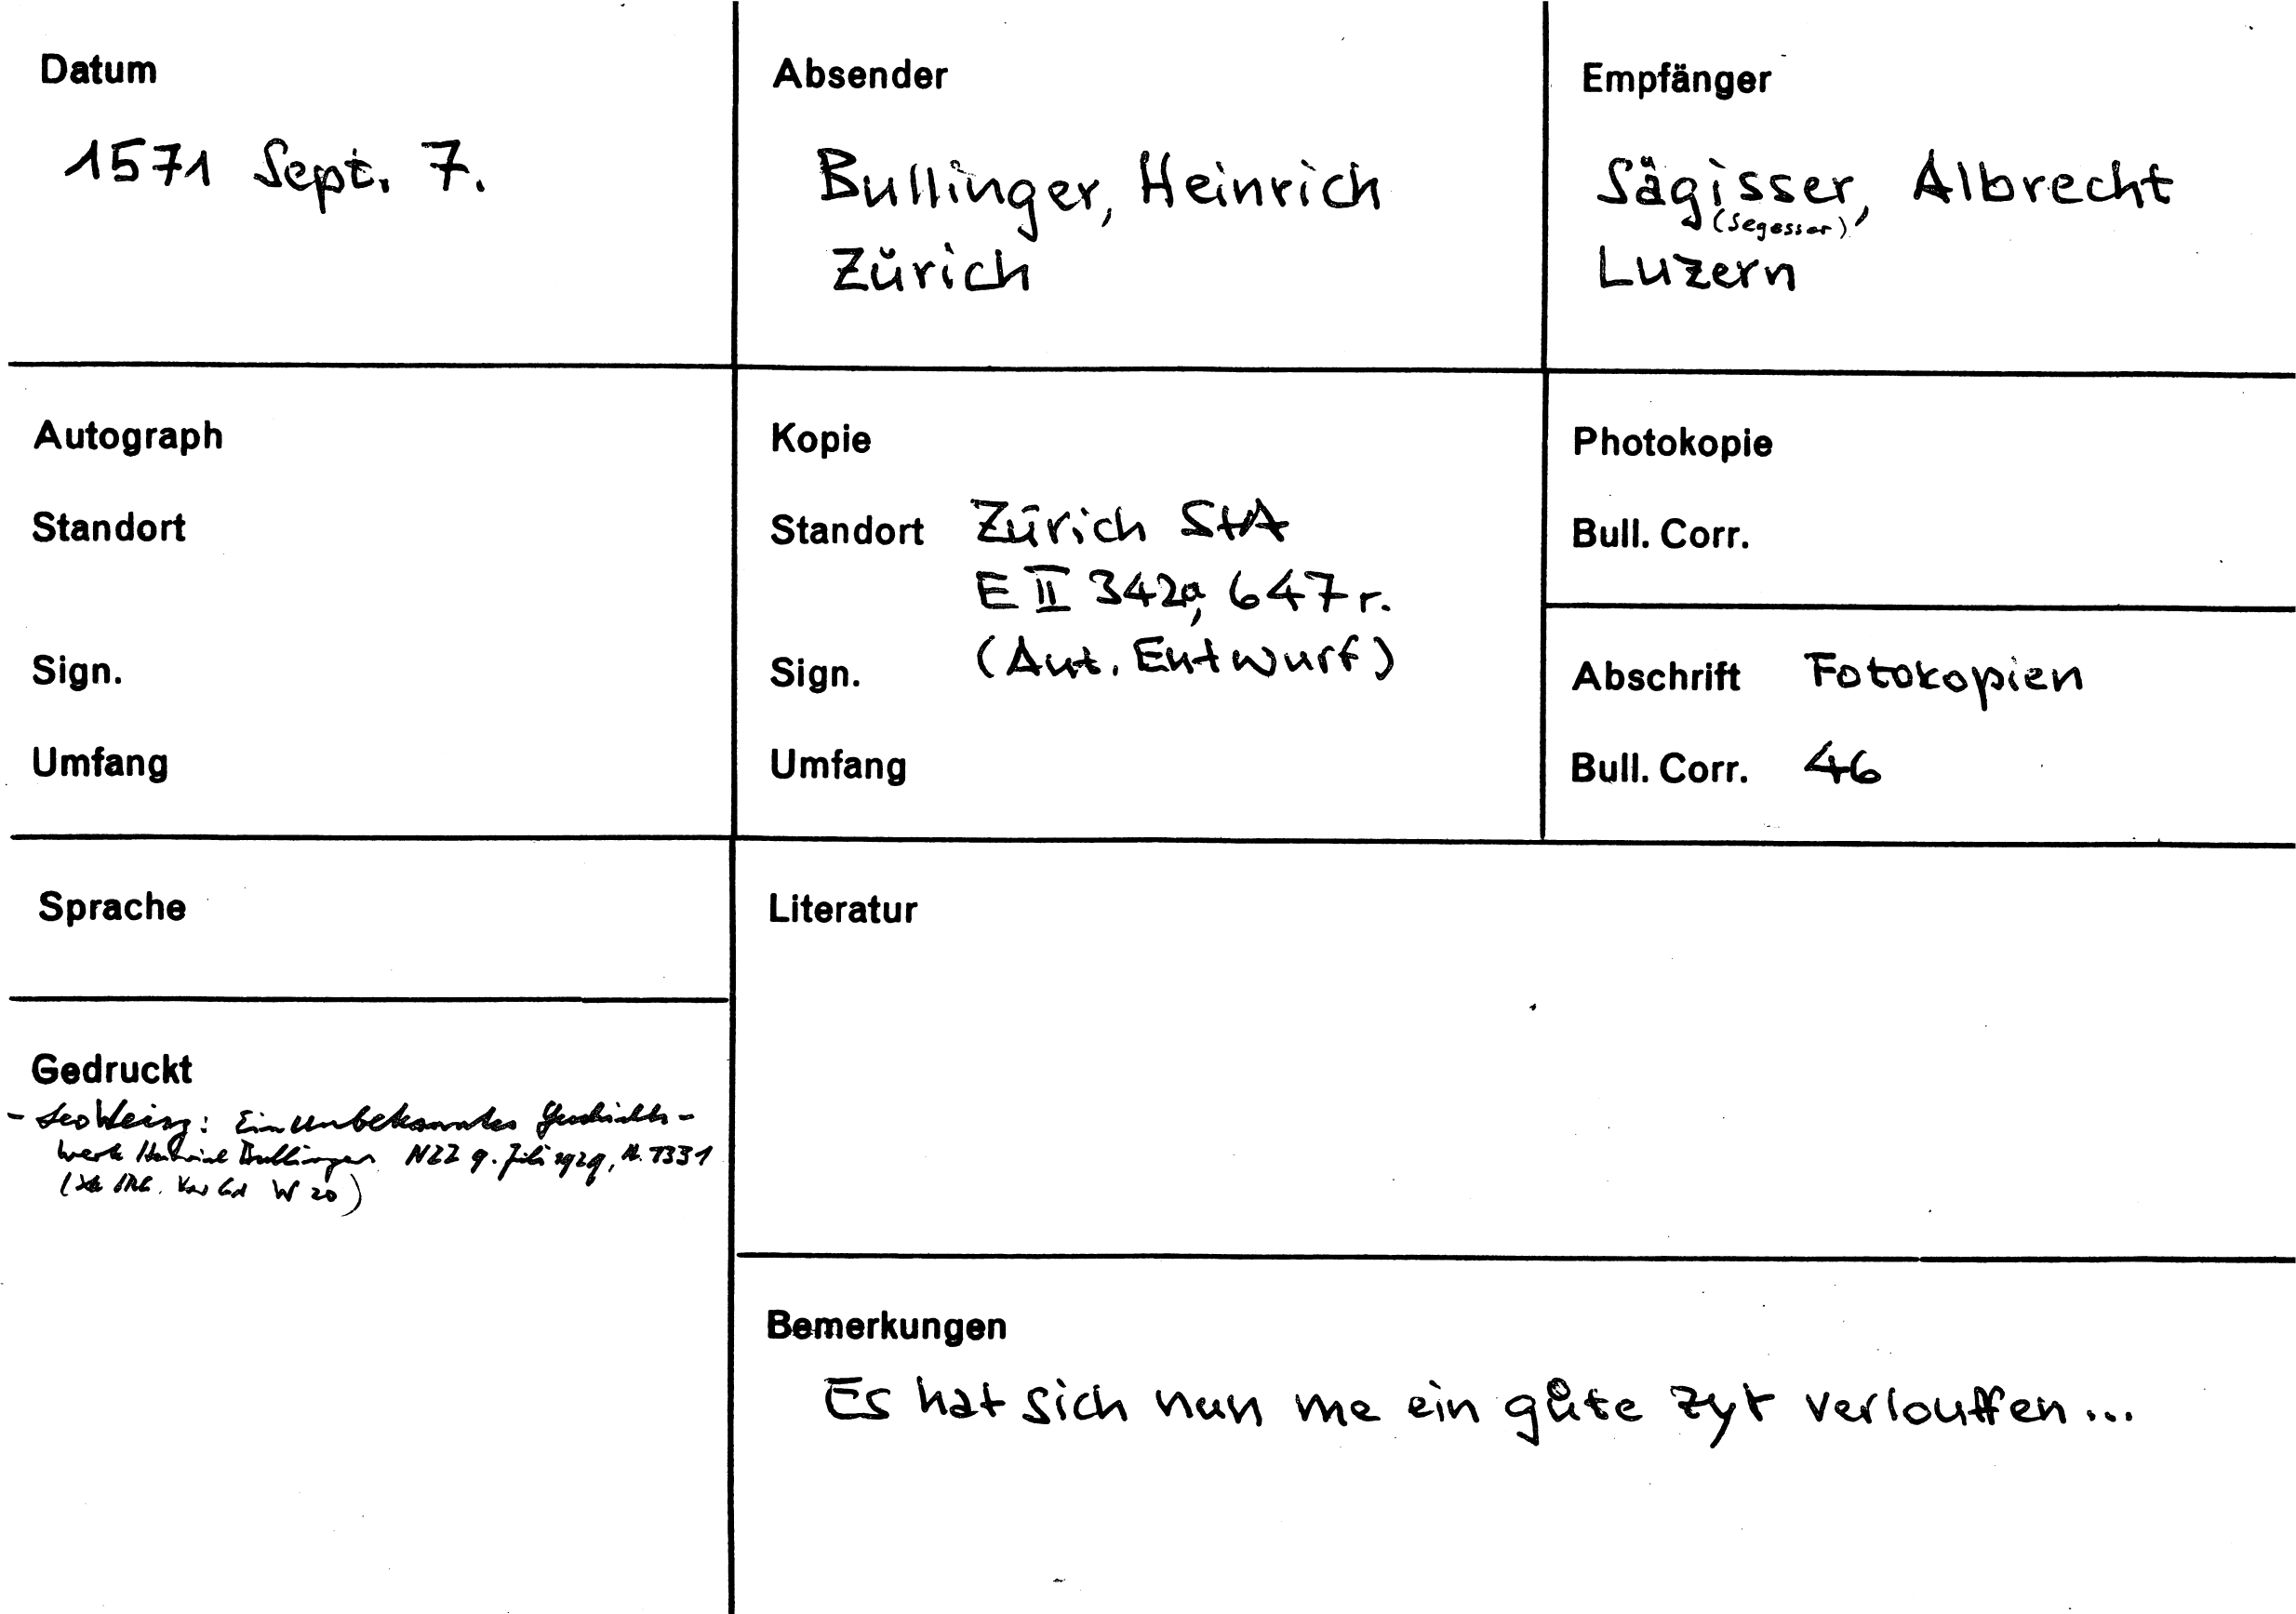 Datum
1571 Sept. 7.
Absender
Bullinger, Heinrich
Zürich
Empfänger
Sägisser, Albrecht
(Segesser)
Luzern
Autograph
Standort
Sign.
Umfang
Kopie
Standort Zürich StA
E II 342a, 647r.
(Aut. Entwurf)
Sign.
Umfang
Photokopie
Bull. Corr.
Abschrift Fotokopien
Bull. Corr. 46
Sprache
Gedruckt
- Leo Weisz: Ein unbekanntes Geschichts-
werk Heinrich Bullingers NZZ 9. Juli 1929, N. 1331
W 20)
Literatur
Bemerkungen
Es hat sich nun me ein gůte zyt verlouffen...